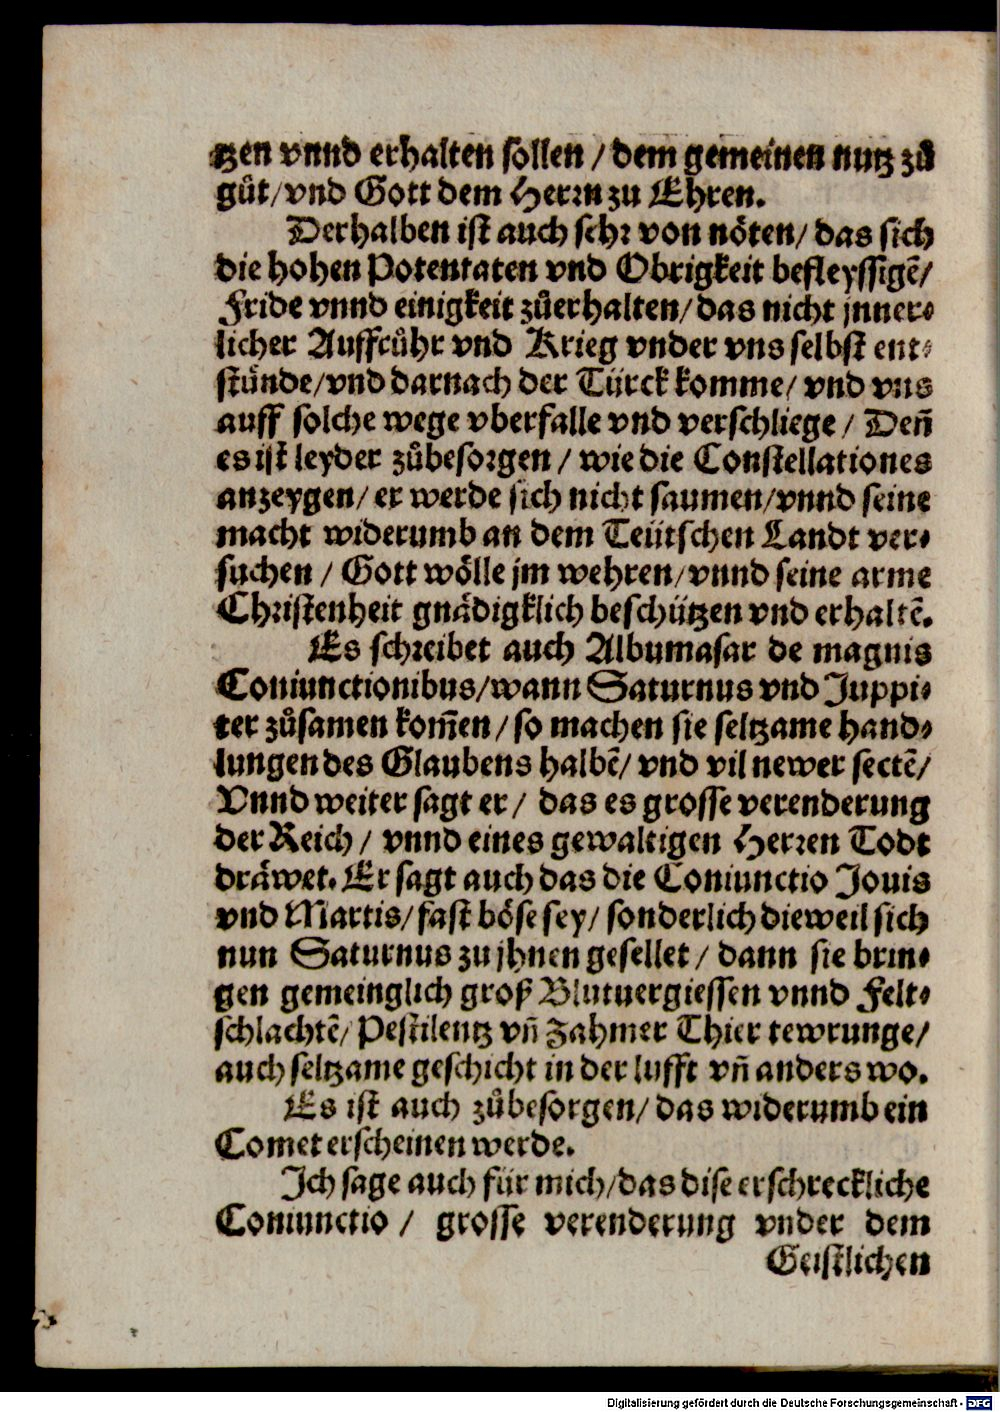 tzen vnnd erhalten sollen / dem gemeinen nutz zů
gůt / vnd Gott dem Herrn zu Ehren.
Derhalben ist auch sehr von nöten / das sich
die hohen Potentaten vnd Obrigkeit befleyssigē /
Fride vnnd einigkeit zůerhalten / das nicht jnner⸗
licher Auffrůhr vnd Krieg vnder vns selbst ent⸗
stünde / vnd darnach der Türck komme / vnd vns
auff solche wege vberfalle vnd verschliege / Deñ
es ist leyder zůbesorgen / wie die Constellationes
anzeygen / er werde sich nicht saumen / vnnd seine
macht widerumb an dem Teütschen Landt ver⸗
suchen / Gott wölle jm wehren / vnnd seine arme
Christenheit gnädigklich beschützen vnd erhaltē.
Es schreibet auch Albumasar de magnis
Coniunctionibus / wann Saturnus vnd Juppi⸗
ter zůsamen kom̃en / so machen sie seltzame hand⸗
lungen des Glaubens halbē / vnd vil newer sectē /
Vnnd weiter sagt er / das es grosse verenderung
der Reich / vnnd eines gewaltigen Herren Todt
dräwet. Er sagt auch das die Coniunctio Jouis
vnd Martis / fast böse sey / sonderlich dieweil sich
nun Saturnus zu jhnen gesellet / dann sie brin⸗
gen gemeinglich groß Blutuergiessen vnnd Felt⸗
schlachtē / Pestilentz vñ Zahmer Thier tewrunge /
auch seltzame geschicht in der lufft vñ anders wo.
Es ist auch zůbesorgen / das widerumb ein
Comet erscheinen werde.
Ich sage auch für mich / das dise erschreckliche
Coniunctio / grosse verenderung vnder dem
Geistlichen
Digitalisierung gefördert durch die Deutsche Forschungsgemeinschaft - DFG